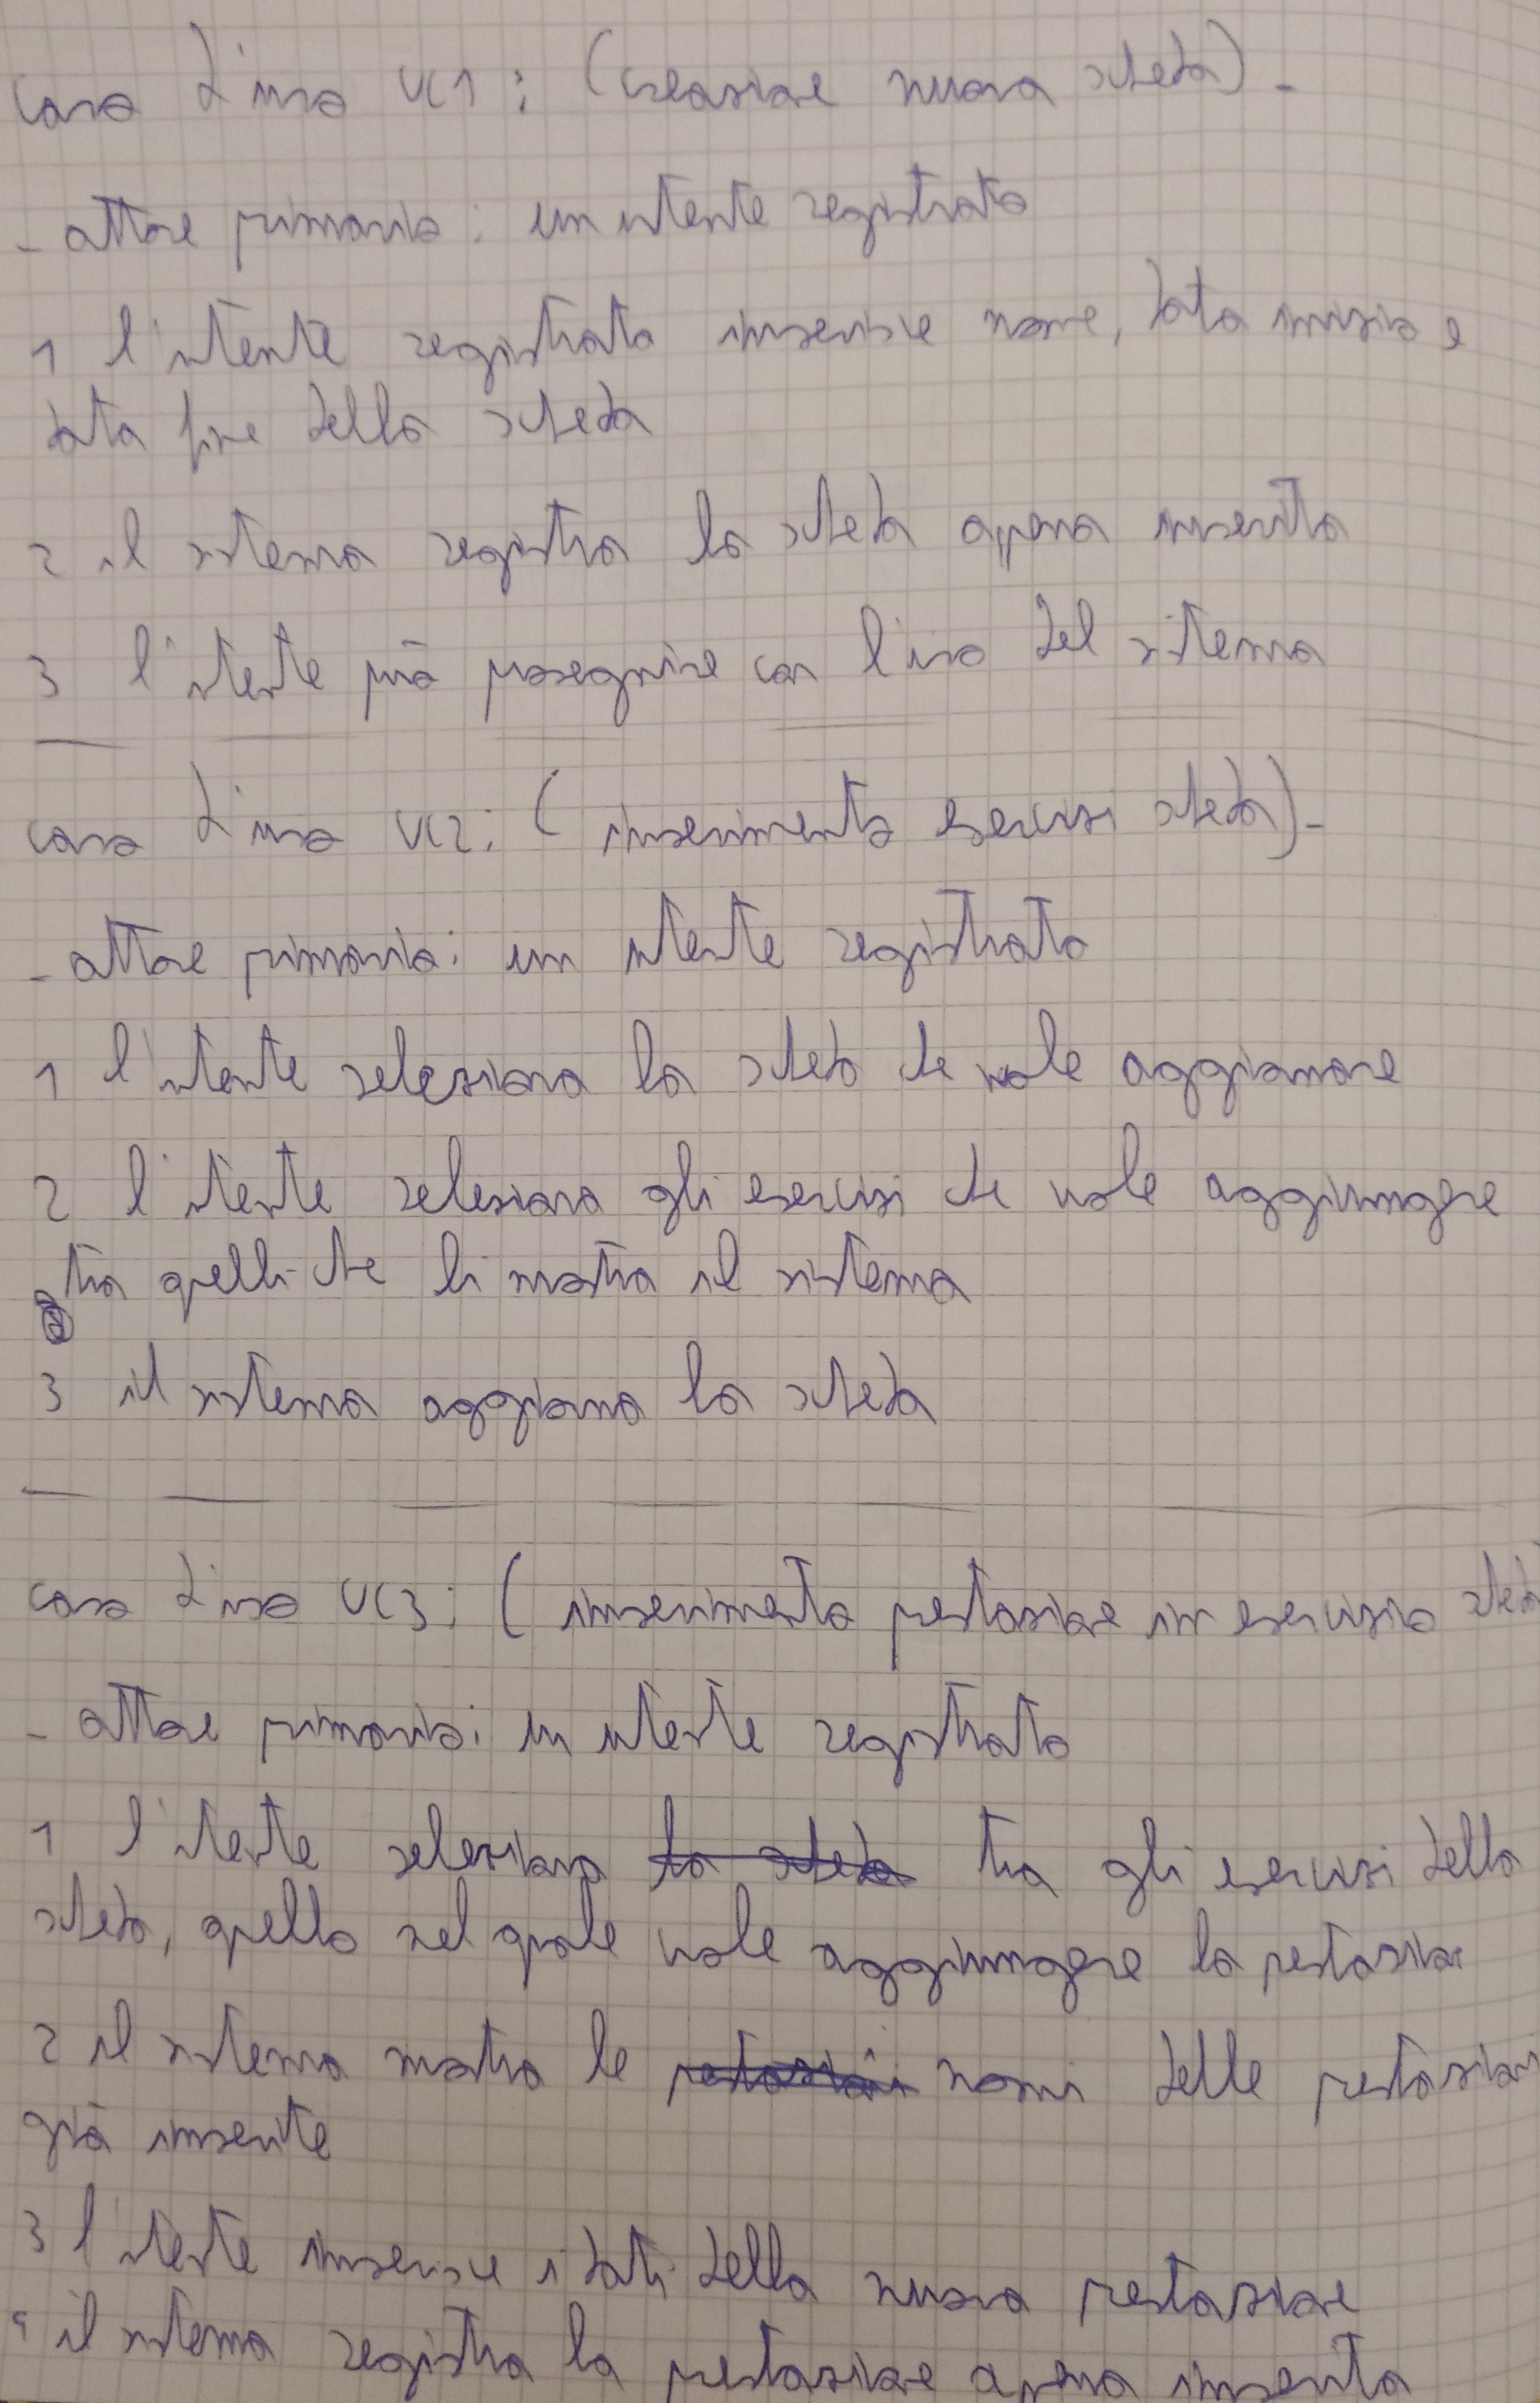 caso d'uso UC1: (creazione nuova scheda) -
- attore primario: un utente registrato
1 l'utente registrato inserisce nome, data inizio e
data fine della scheda
2 il sistema registra la scheda appena inserita
3 l'utente può proseguire con l'uso del sistema
caso d'uso UC2: (inserimento esercizi scheda) -
- attore primario: un utente registrato
1 l'utente seleziona la scheda che vuole aggiornare
2 l'utente seleziona gli esercizi che vuole aggiungere
tra quelli che li mostra il sistema
3 il sistema aggiorna la scheda
caso d'uso UC3: (inserimento prestazione in esercizio scheda
- attore primario: un utente registrato
1 l'utente seleziona la scheda tra gli esercizi della
scheda, quello nel quale vuole aggiungere la prestazione
2 il sistema mostra le prestazioni nomi delle prestazioni
già inserite
3 l'utente inserisce i dati della nuova prestazione
4 il sistema registra la prestazione appena inserita